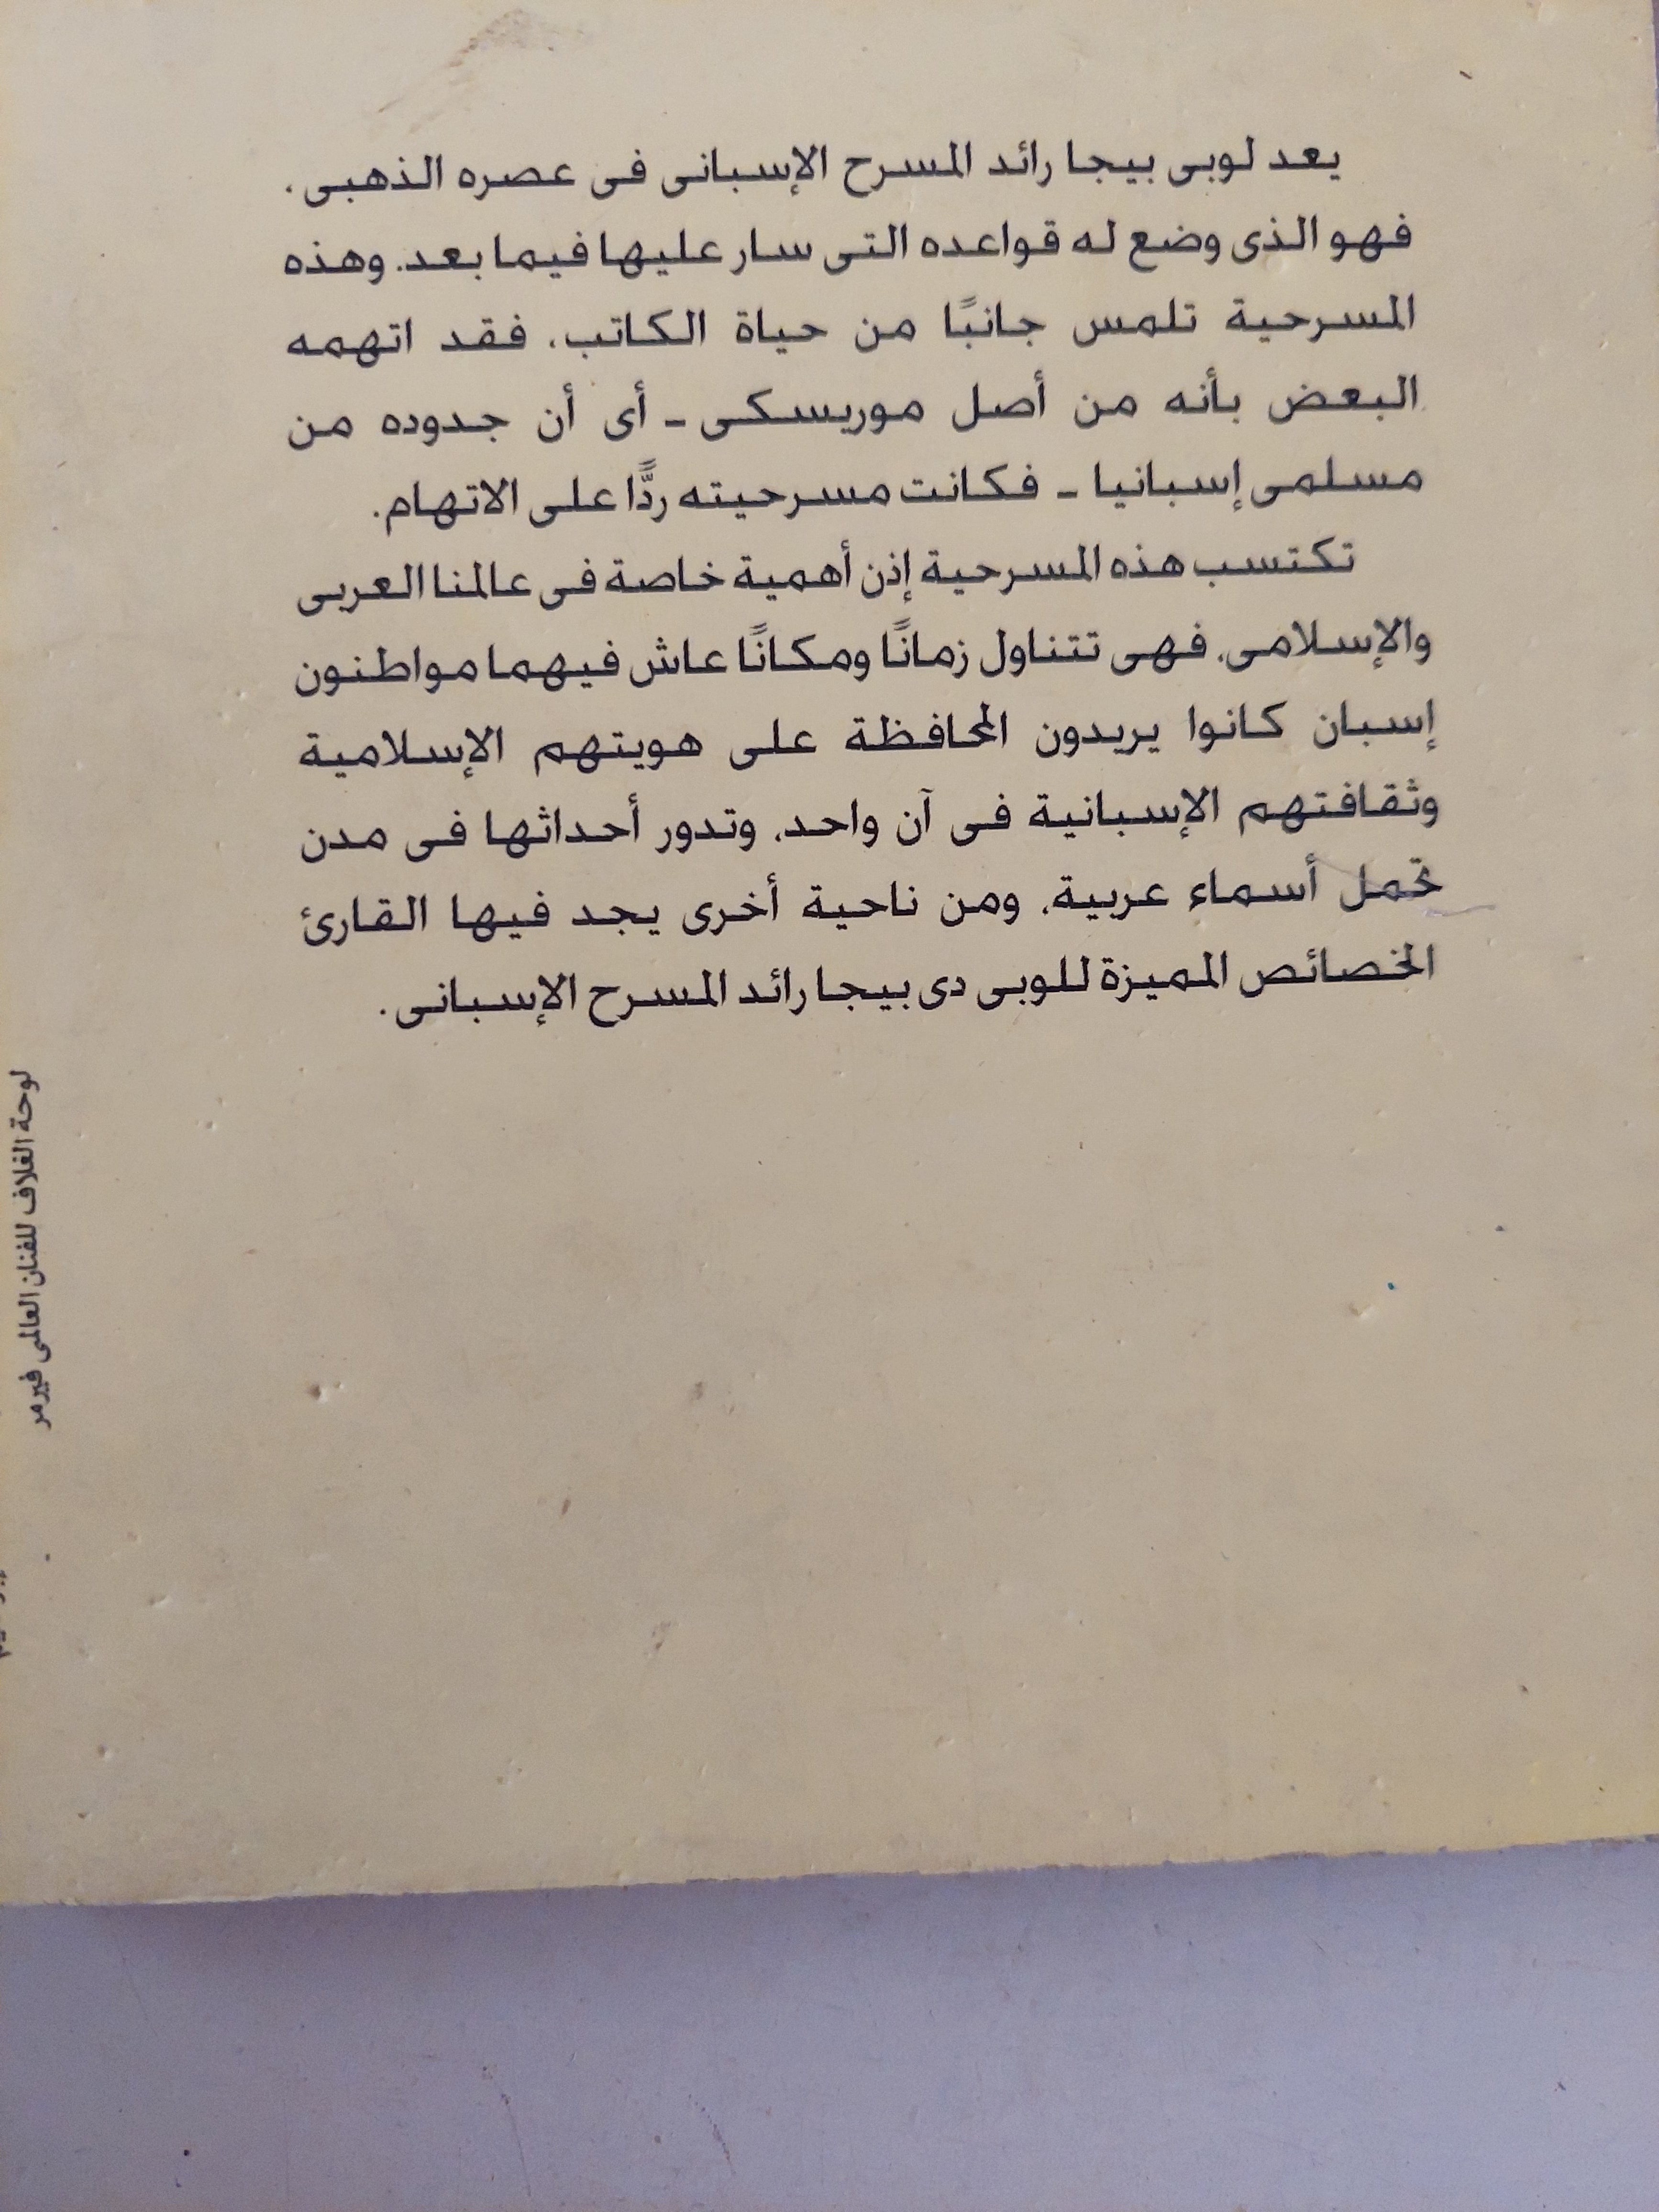 يعد لوبى بيجا رائد المسرح الإسبانى فى عصره الذهبى،
فهو الذى وضع له قواعده التى سار عليها فيما بعد. وهذه
المسرحية تلمس جانبًا من حياة الكاتب، فقد اتهمه
البعض بأنه من أصل موريسكى ـ أى أن جدوده من
مسلمى إسبانيا ـ فكانت مسرحيته ردًّا على الاتهام.
تكتسب هذه المسرحية إذن أهمية خاصة فى عالمنا العربى
والإسلامى، فهى تتناول زمانًا ومكانًا عاش فيهما مواطنون
إسبان كانوا يريدون المحافظة على هويتهم الإسلامية
وثقافتهم الإسبانية فى آن واحد، وتدور أحداثها فى مدن
تحمل أسماء عربية، ومن ناحية أخرى يجد فيها القارئ
الخصائص المميزة للوبى دى بيجا رائد المسرح الإسبانى.
لوحة الغلاف للفنان العالمى فيرمر